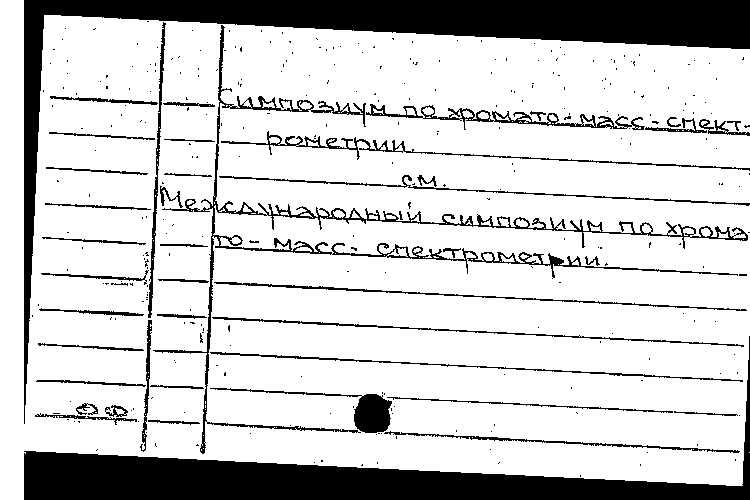 Симпозиум по хромато-масс-спект-
рометрии.
см.
Международный симпозиум по хрома
то-масс-спектрометрии.